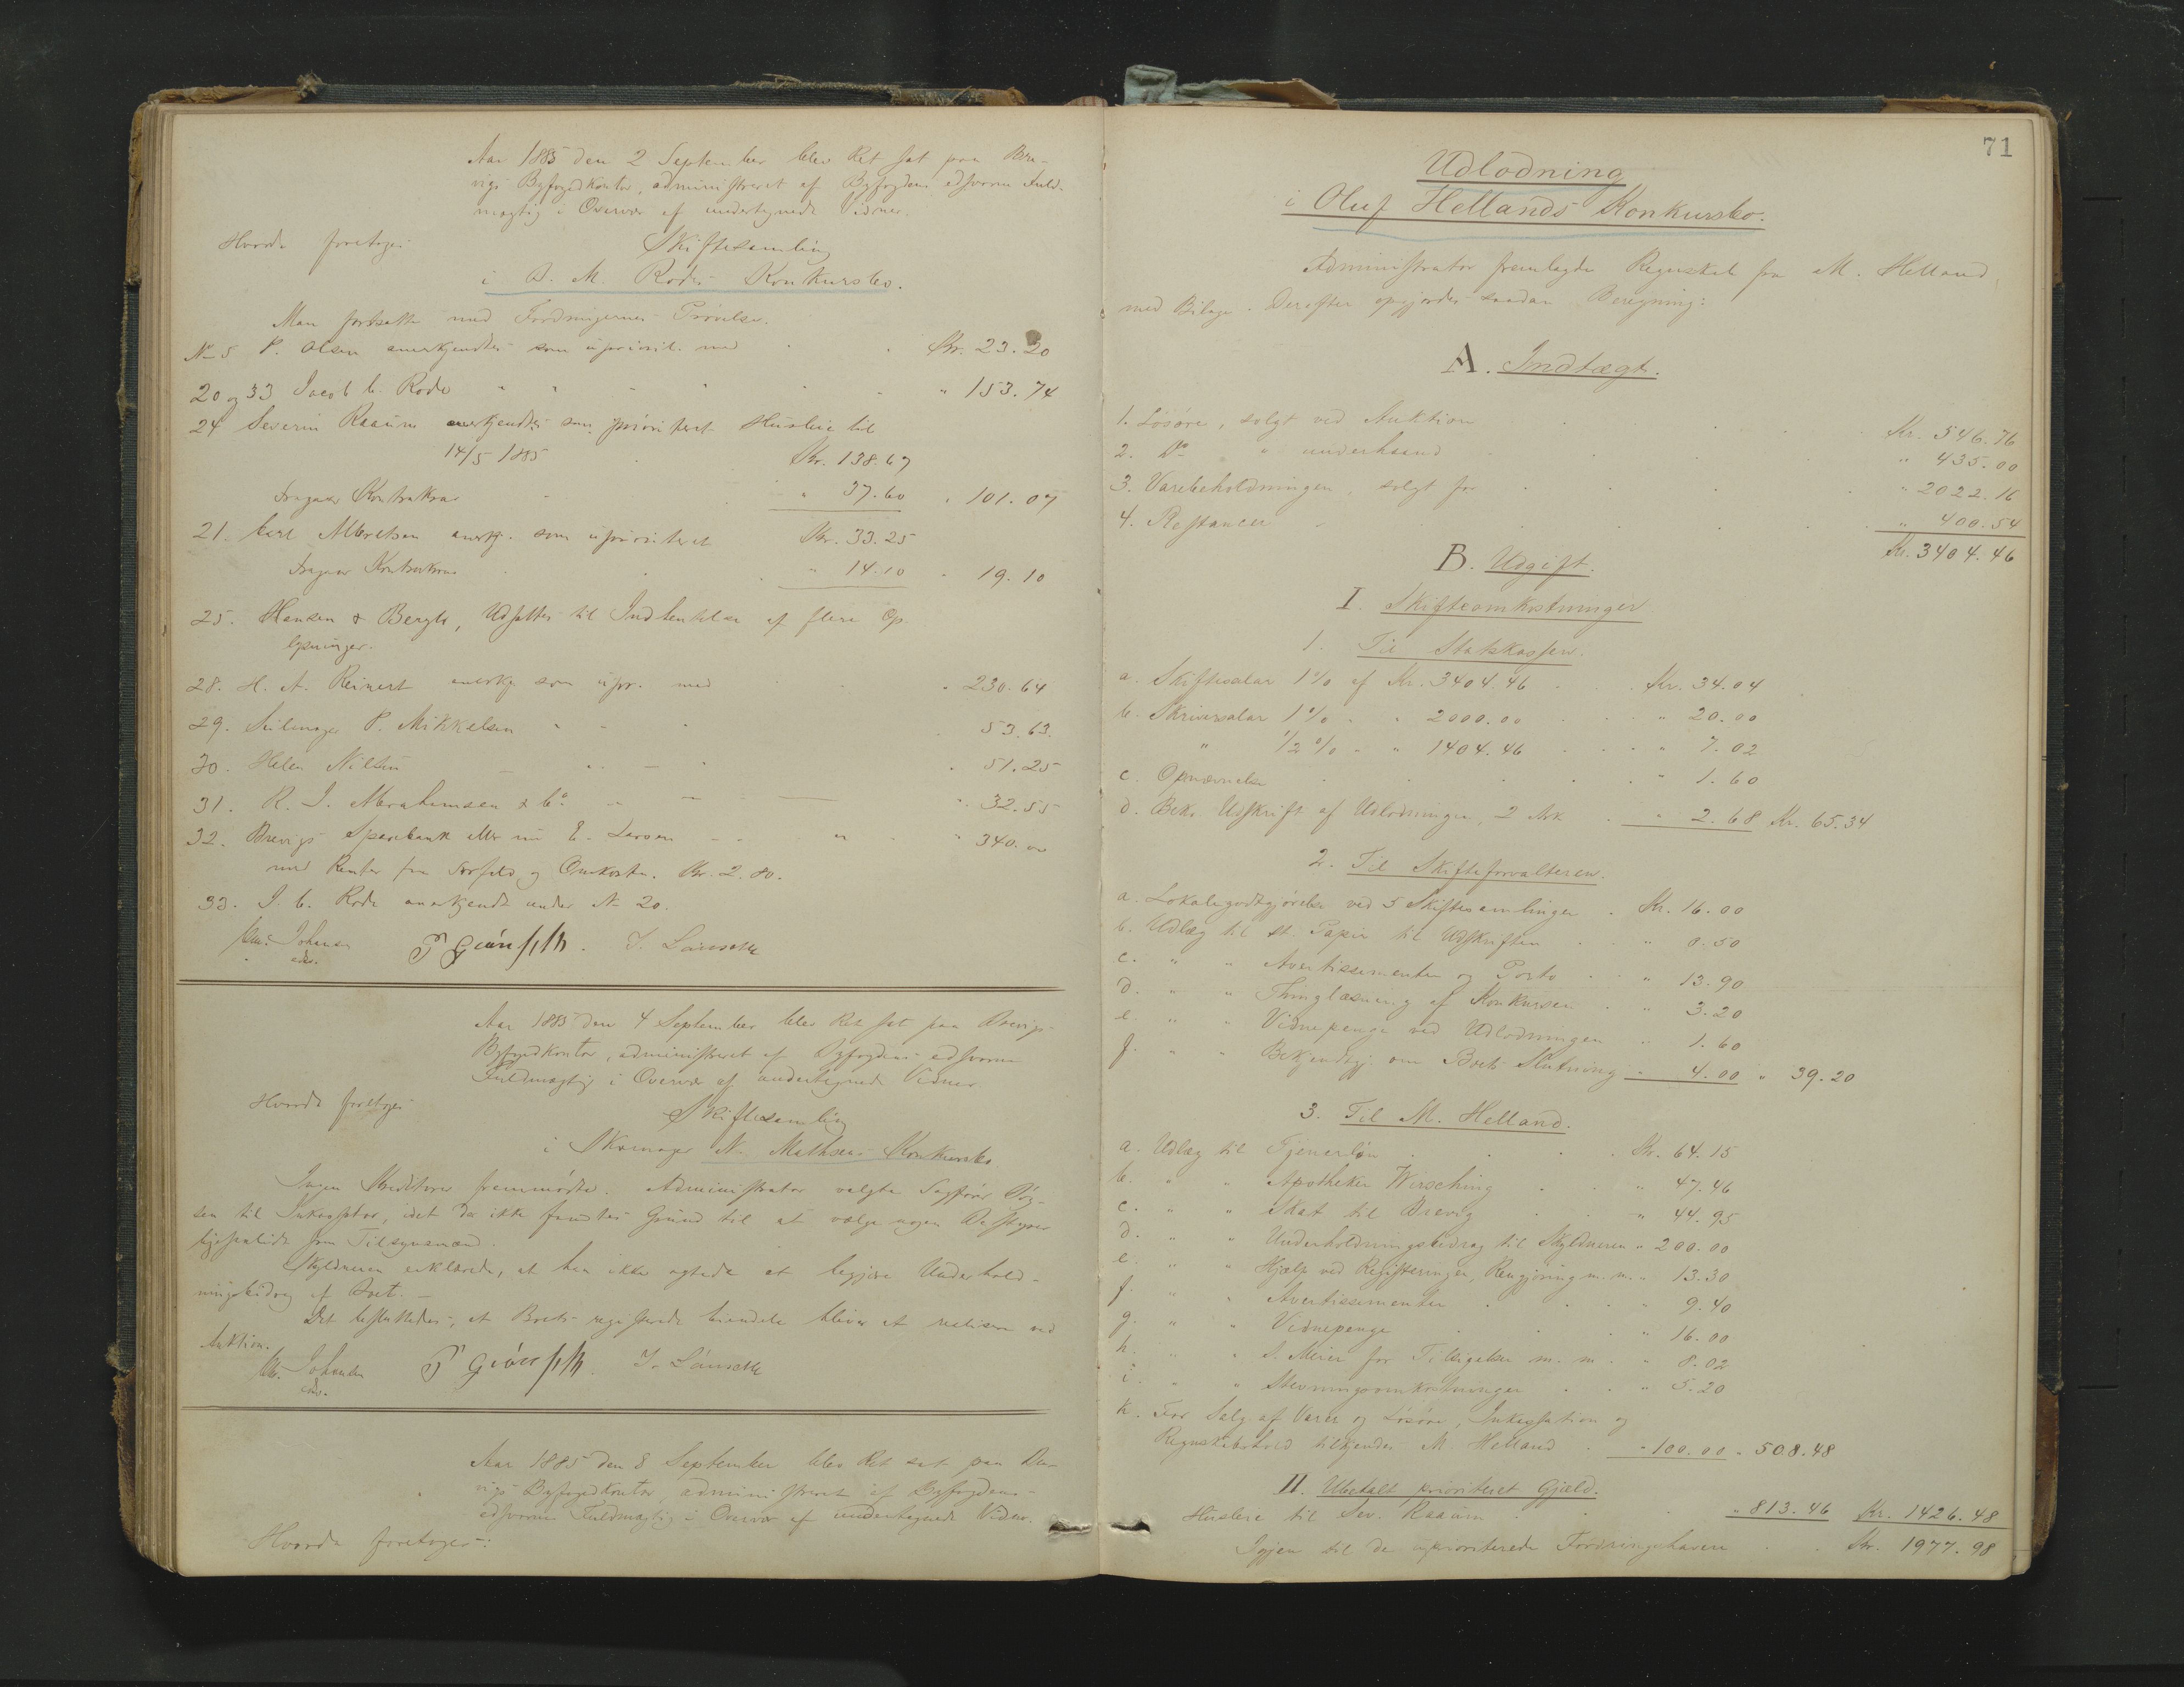 Aar 1885 den 2 September blev Ret sat paa Bre-
vigs Byfogedkontor, administreret af Byfogdens edsvorne Fuld-
mægtig i Overvær af undertegnede Vidner.
Hvorda foretoges
Skiftesamling
i A. M. Rodes Konkursbo.
Man fortsatte med Fordringernes Prøvelse.
No 5 P. Olsen anerkjendtes som uprioril. med Kr. 23.20
20 og 33 Jacob C. Rode " " " " " 153.74
24 Severin Raaum anerkjendtes som prioriteret Husleie til
14/5 1885 Kr. 138.67
fragaar Kontrakrav " 37.60 " 101.07
21. Carl Albretsen anerkj. som uprioriteret Kr. 33.25
fragaar Kontrakrav " 14.10 " 19.10
25. Hansen & Bergh, Udsattes til Indhentelse af flere Op-
lysninger.
28. H. A. Reinert anerkj. som upr. med " 230.64
29. Seilmager P. Mikkelsen " - " 53.63.
30. Helen Nilsen " 51.25
31. R. J. Abrahamsen & Co. " 32.55
32. Brevigs Sparebank eller nu E. Larsen " 340.00
med Renter fra Forfald og Omkostn. Kr. 2.80.
33. J. C. Rode anerkjendt under No 20.
Chr. Johnsen
edsv.
Aar 1885 den 4 September blev Ret sat paa Brevigs
Byfogedkontor, administreret af Byfogdens edsvorne
Fuldmægtig i Overvær af undertegnede Vidner
Hvorda foretoges
Skiftesamling
i Skomager N. Mathsens Konkursbo
Ingen Kreditorer fremmødte. Administrator valgte Sagfører
sen til Inkassator, idet der ikke fandtes Grund til at vælge nogen Bestyrer
ligesaalidt som Tilsynsmænd.
Skyldneren erklærede, at han ikke agtede at begjære Underhold-
ningsbidrag af Boet. -
Det besluttedes, at Boets registrerede Eiendele bliver at realisere ved
Auktion.
Chr. Johnsen
edsv.
Aar 1885 den 8 September blev Ret sat paa Bre-
vigs Byfogedkontor, administreret af Byfogdens
edsvorne Fuldmægtig i Overvær af undertegnede Vidner.
Hvorda foretoges:
71
Udlodning
i Oluf Hellands Konkursbo.
Administrator fremlagde Regnskab fra M. Helland
med Bilage. Derefter opgjordes saadan Beregning:
A. Indtægt.
1. Løsøre, solgt ved Auktion Kr. 546.76
2. Do " underhaand " 435.00
3. Varebeholdningen, solgt for " 2022.16
4. Restancer " 400.54
Kr. 3404.46
B. Udgift.
I. Skifteomkostninger.
1. Til Statskassen.
a. Skiftesalar 1% af Kr. 3404.46 Kr. 34.04
b. Skriversalar 1% " " 2000.00 " 20.00
" 1/2% " " 1404.46 " 7.02
c. Opnævnelse " 1.60
d. Bekr. Udskrift af Udlodningen, 2 Ark " 2.68 Kr. 65.34
2. Til Skifteforvalteren.
a. Lokalegodtgjørelse ved 5 Skiftesamlinger Kr. 16.00
b. Udlæg til st. Papir til Udskriften " 0.50
c. " " Avertissementer og Porto " 13.90
d. " " Thinglæsning af Konkursen " 3.20
e. " " Vidnepenge ved Udlodningen " 1.60
f. " " Bekjendtgj. om Boets Slutning " 4.00 " 39.20
3. Til M. Helland.
a. Udlæg til Tjenerløn Kr. 64.15
b. " " Apotheker Wirsching " 47.46
c. " " Skat til Brevig " 44.95
d. " " Underholdningsbidrag til Skyldneren " 200.00
e. " " Hjælp ved Registreringen, Rengjøring m.m. " 13.30
f. " " Avertissementer " 9.40
g. " " Vidnepenge " 16.00
h. " " S. Meier for Tilsigelser m. m. " 8.02
i. " " Stevningsomkostninger " 5.20
k. For Salg af Varer og Løsøre, Inkassation og
Regnskabshold tilkjendes M. Helland " 100.00 " 508.48
II. Ubetalt prioriteret Gjæld.
Husleie til Sev. Raaum " 813.46 Kr. 1426.48
Igjen til de uprioriterede Fordringshavere Kr. 1977.98